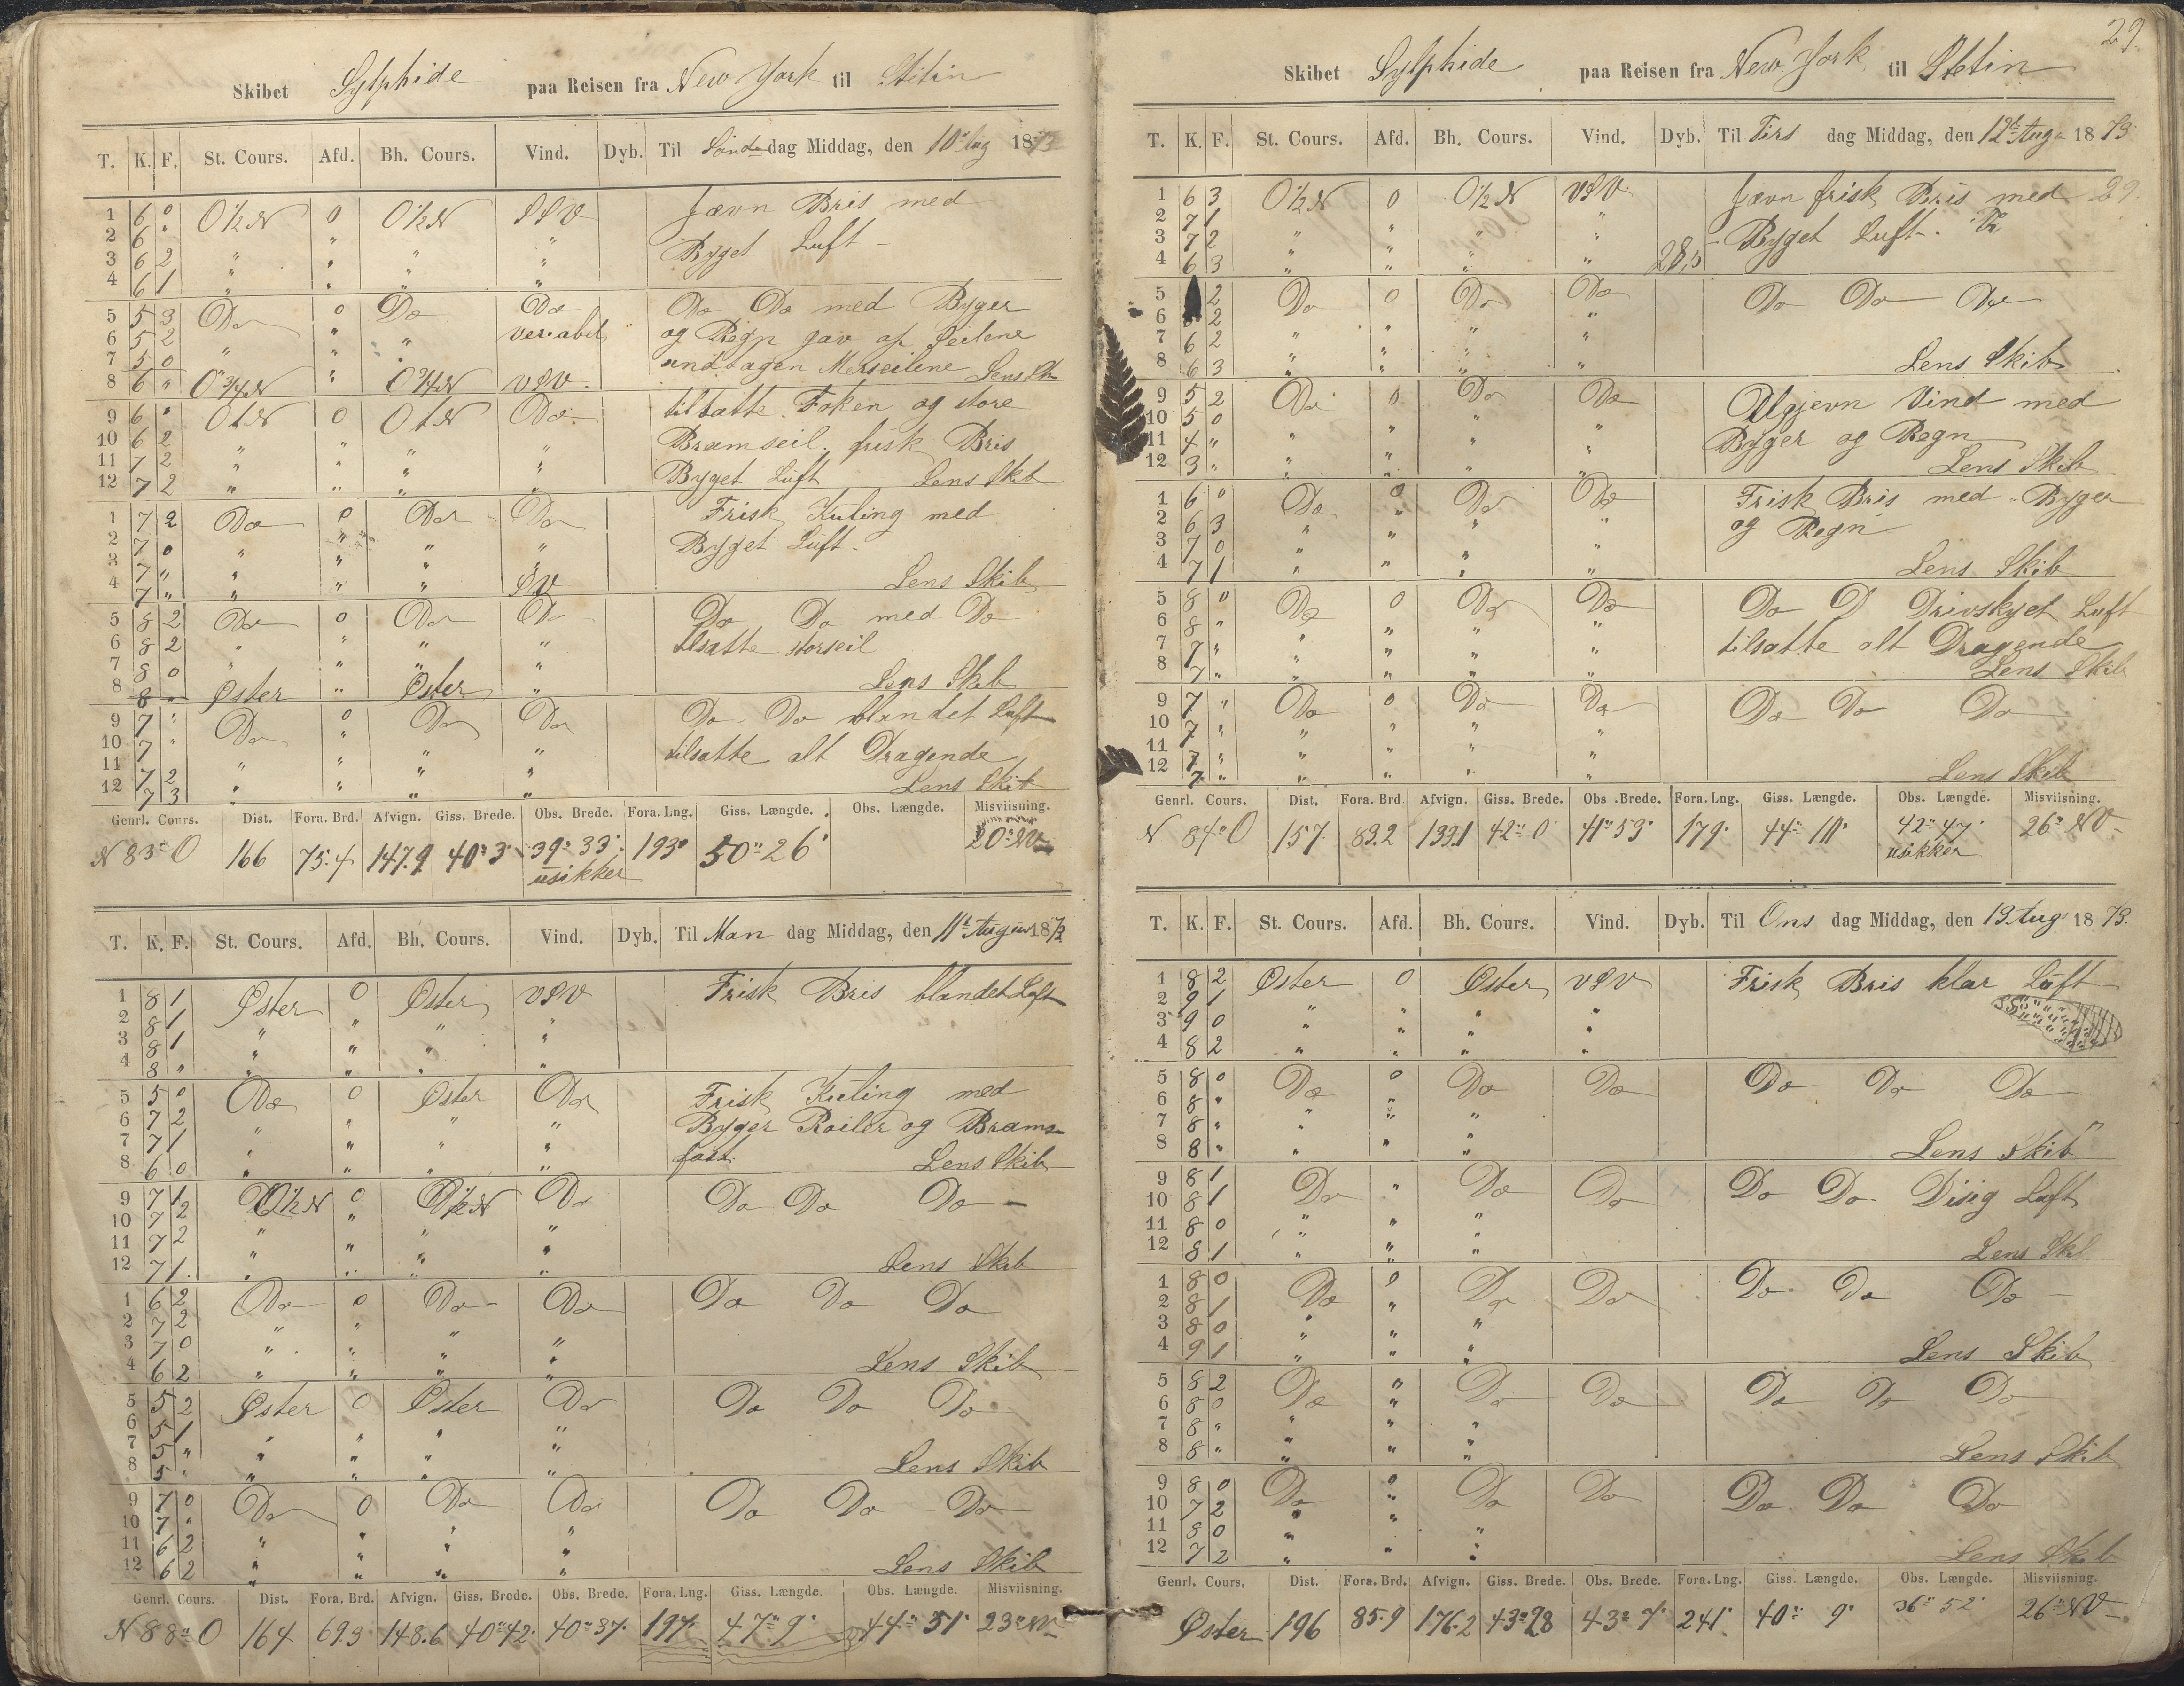 Skibet Sylphide paa Reisen fra New York til Stetin
T. K. F. St. Cours. Afd. Bh. Cours. Vind. Dyb. Til Sønda dag Middag, den 10 Aug 1873
1 6 0 O½N 0 O½N SSV Jævn Bris med
2 6 " " " " " Byget Luft
3 6 2 " " " "
4 6 1 " " " "
5 5 3 Do 0 Do Do Do Do med Byger
6 5 2 " " " veriabel og Regn gav af Seilene
7 5 0 " " " undtagen Merseilene Lens Sk
8 6 " O¾N " O¾N VSV
9 6 " OtN 0 OtN Do tilsatte Foken og store
10 6 2 " " " " Bramseil. frisk Bris
11 7 2 " " " " Byget Luft Lens Skib
12 7 2 " " " "
1 7 2 Do 0 Do Do Frisk Kuling med
2 7 0 " " " " Byget Luft
3 7 " " " " "
4 7 " " " " SV Lens Skib
5 8 2 Do 0 Do Do Do Do med Do
6 8 2 " " " " tilsatte storseil
7 8 0 " " " "
8 8 " Øster " Øster " Lens Skib
9 7 " Do 0 Do Do Do Do blandet Luft
10 7 " " " " " tilsatte alt Dragende
11 7 2 " " " "
12 7 3 " " " " Lens Skib
Genrl. Cours. Dist. Fora. Brd. Afvign. Giss. Brede. Obs. Brede. Fora. Lng. Giss. Længde. Obs. Længde. Misviisning.
N 83° O 166 75.4 147.9 40° 3' 39° 33' 193' 50° 26' 20° NV
usikker
T. K. F. St. Cours. Afd. Bh. Cours. Vind. Dyb. Til Man dag Middag, den 11t August 1873
1 8 1 Øster 0 Øster VSV Frisk Bris blandet Luft
2 8 1 " " " "
3 8 1 " " " "
4 8 " " " " "
5 5 0 Do 0 Øster Do Frisk Kuling med
6 7 2 " " " " Byger Roiler og Brams
7 7 1 " " " " fast.
8 6 0 " " " " Lens Skib
9 7 1 O½N 0 O½N Do Do Do Do
10 7 2 " " " "
11 7 2 " " " "
12 7 1 " " " " Lens Skib
1 6 2 Do 0 Do Do Do Do Do
2 7 2 " " " "
3 7 0 " " " "
4 6 2 " " " " Lens Skib
5 5 2 Øster 0 Øster Do Do Do Do
6 5 1 " " " "
7 5 " " " " "
8 5 " " " " " Lens Skib
9 7 0 Do 0 Do Do Do Do Do
10 7 " " " " "
11 6 2 " " " "
12 6 2 " " " " Lens Skib
Genrl. Cours. Dist. Fora. Brd. Afvign. Giss. Brede. Obs. Brede. Fora. Lng. Giss. Længde. Obs. Længde. Misviisning.
N 88° O 164 69.3 148.6 40° 42' 40° 37' 197' 47° 9' 44° 51' 23° NV
29.
Skibet Sylphide paa Reisen fra New York til Stetin
T. K. F. St. Cours. Afd. Bh. Cours. Vind. Dyb. Til Tirs dag Middag, den 12t Aug 1873
1 6 3 O½N 0 O½N VSV Jævn frisk Bris med 29.
2 7 1 " " " " Byget Luft.
3 7 2 " " " "
4 6 3 " " " " 28,5
5 2 Do 0 Do Do Do Do Do
6 2 " " " "
7 6 2 " " " "
8 6 3 " " " " Lens Skib
9 5 2 Do 0 Do Do Ulgjevn Vind med
10 5 0 " " " " Byger og Regn
11 4 " " " " "
12 3 " " " " " Lens Skib
1 6 0 Do 0 Do Do Frisk Bris med Byger
2 6 3 " " " " og Regn
3 7 0 " " " "
4 7 1 " " " " Lens Skib
5 8 0 Do 0 Do Do Do D Drivskyet Luft
6 8 " " " " " tilsatte alt Dragende
7 7 " " " " "
8 7 " " " " " Lens Skib
9 7 " Do 0 Do Do Do Do Do
10 7 " " " " "
11 7 " " " " "
12 7 " " " " " Lens Skib
Genrl. Cours. Dist. Fora. Brd. Afvign. Giss. Brede. Obs. Brede. Fora. Lng. Giss. Længde. Obs. Længde. Misviisning.
N 84° O 157 83.2 133.1 42° 0' 41° 53' 179' 44° 11' 42° 47' 26° NV
usikker
T. K. F. St. Cours. Afd. Bh. Cours. Vind. Dyb. Til Ons dag Middag, den 13 Aug 1873.
1 8 2 Øster 0 Øster VSV Frisk Bris klar Luft
2 9 1 " " " "
3 9 0 " " " "
4 8 2 " " " "
5 8 0 Do 0 Do Do Do Do Do
6 8 " "
7 8 " " " "
8 8 " " " " Lens Skib
9 8 1 Do " Do Do Do Do Disig Luft
10 8 1
11 8 0 " " "
12 8 1 " " " Lens Skib
1 8 0 Do 0 Do Do Do Do Do
2 8 1 "
3 8 0 " " "
4 9 1 " " " Lens Skib
5 8 2 Do " Do Do Do Do Do
6 8 0 "
7 8 " " " "
8 8 " " " " Lens Skib
9 8 0 Do 0 Do Do Do Do Do
10 7 2 "
11 8 0 " " "
12 7 2 " " Lens Skib
Genrl. Cours. Dist. Fora. Brd. Afvign. Giss. Brede. Obs. Brede. Fora. Lng. Giss. Længde. Obs. Længde. Misviisning.
Øster 196 85.9 176.2 43° 28 43° 7' 241' 40° 9' 36° 52' 26° NV